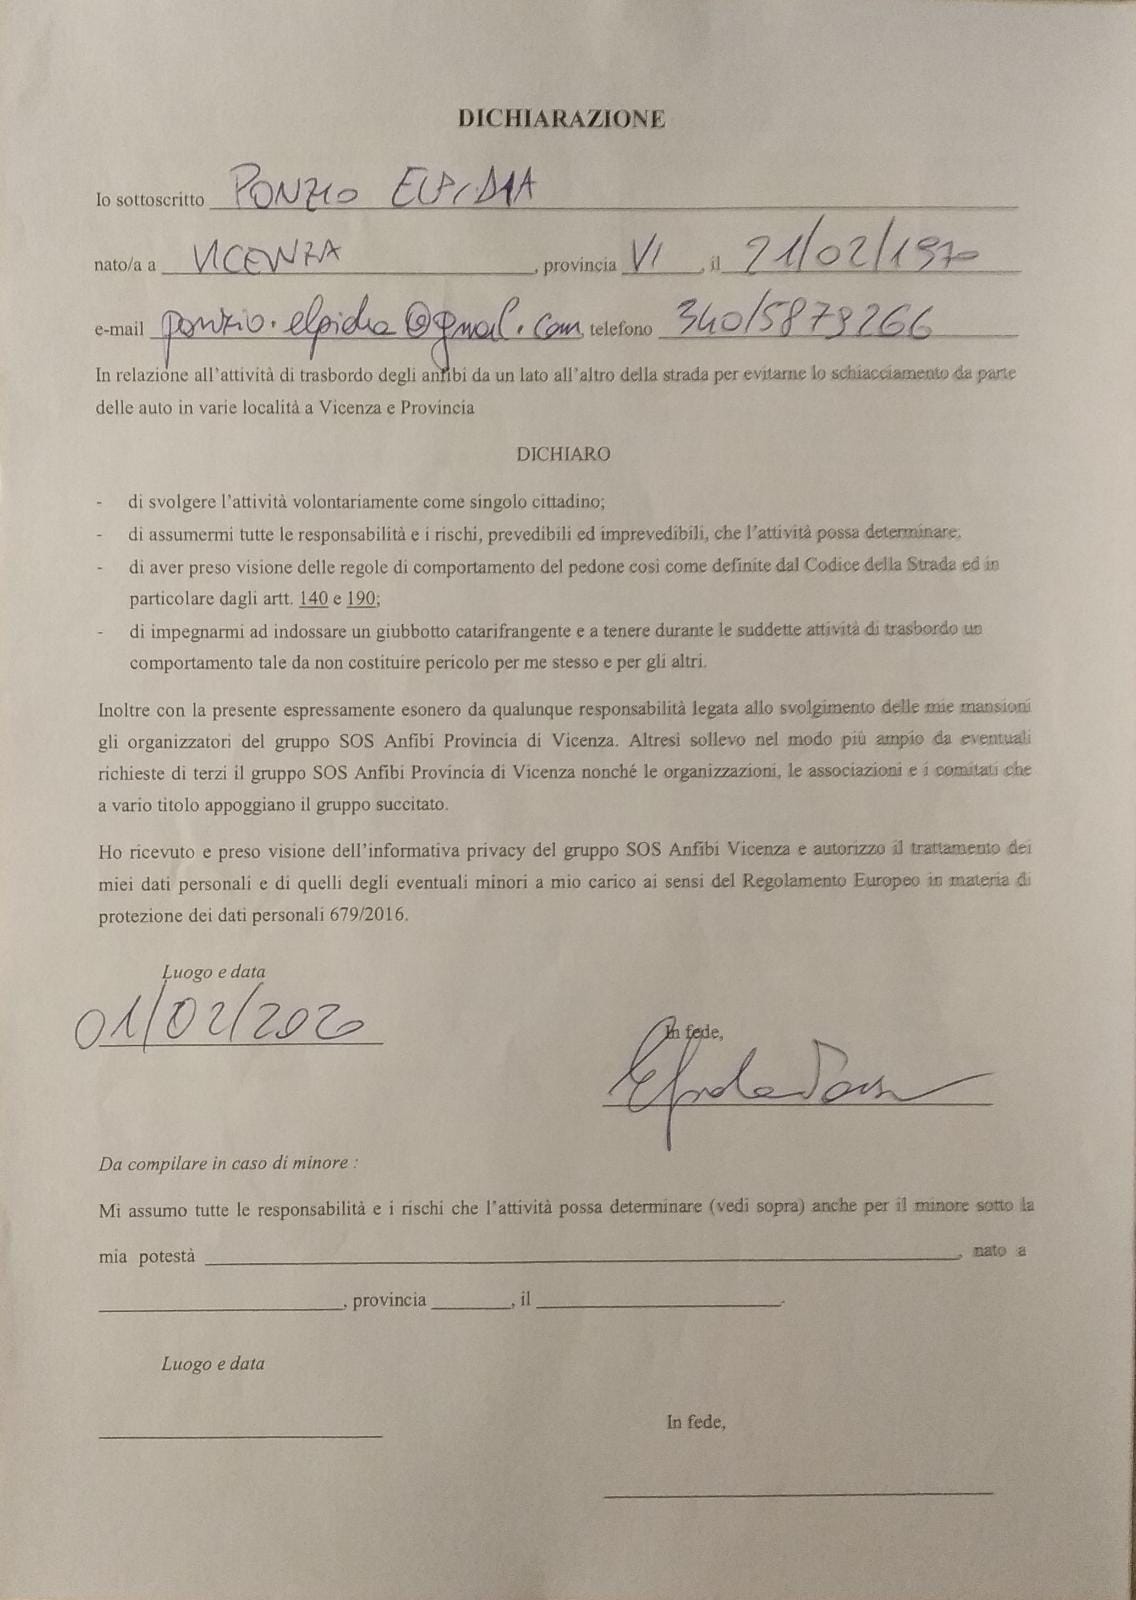 DICHIARAZIONE
Io sottoscritto PONZIO ELPIDIA
nato/a a VICENZA, provincia VI, il 21/02/1970
e-mail ponzio.elpidia@gmail.com, telefono 340/5879266
In relazione all'attività di trasbordo degli anfibi da un lato all'altro della strada per evitarne lo schiacciamento da parte
delle auto in varie località a Vicenza e Provincia
DICHIARO
- di svolgere l'attività volontariamente come singolo cittadino;
- di assumermi tutte le responsabilità e i rischi, prevedibili ed imprevedibili, che l'attività possa determinare;
- di aver preso visione delle regole di comportamento del pedone così come definite dal Codice della Strada ed in
particolare dagli artt. 140 e 190;
- di impegnarmi ad indossare un giubbotto catarifrangente e a tenere durante le suddette attività di trasbordo un
comportamento tale da non costituire pericolo per me stesso e per gli altri.
Inoltre con la presente espressamente esonero da qualunque responsabilità legata allo svolgimento delle mie mansioni
gli organizzatori del gruppo SOS Anfibi Provincia di Vicenza. Altresì sollevo nel modo più ampio da eventuali
richieste di terzi il gruppo SOS Anfibi Provincia di Vicenza nonché le organizzazioni, le associazioni e i comitati che
a vario titolo appoggiano il gruppo succitato.
Ho ricevuto e preso visione dell'informativa privacy del gruppo SOS Anfibi Vicenza e autorizzo il trattamento dei
miei dati personali e di quelli degli eventuali minori a mio carico ai sensi del Regolamento Europeo in materia di
protezione dei dati personali 679/2016.
Luogo e data
01/02/2020
In fede,
Elpidia Ponzio
Da compilare in caso di minore :
Mi assumo tutte le responsabilità e i rischi che l'attività possa determinare (vedi sopra) anche per il minore sotto la
mia potestà , nato a
, provincia , il .
Luogo e data
In fede,